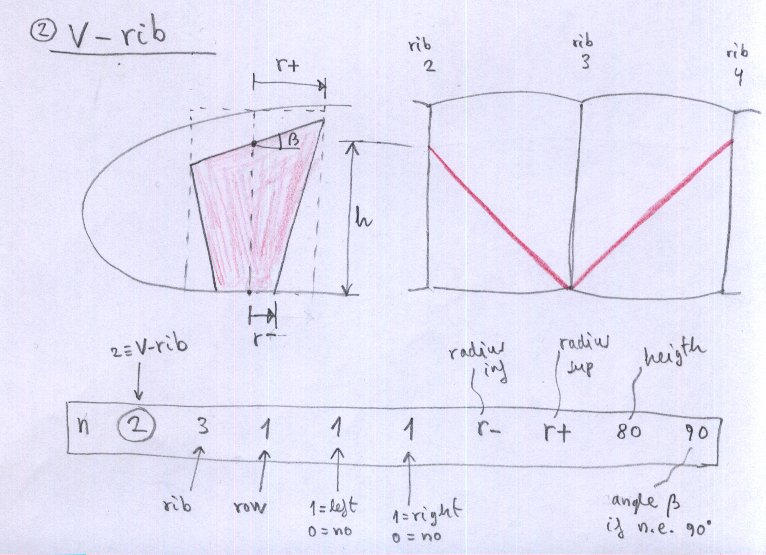 ② V-rib
rib 2
rib 3
rib 4
r+
β
h
r-
2≡V-rib
radius inf
radius sup
heigth
n ② 3 1 1 1 r- r+ 80 90
rib
row
1=left
0=no
1=right
0=no
angle β
if n.e. 90°